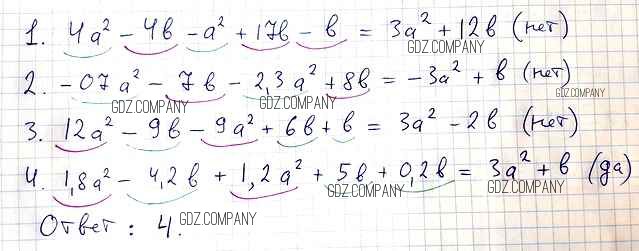 1. 4a² - 4b - a² + 17b - b = 3a² + 12b (нет)
GDZ.COMPANY
2. -07a² - 7b - 2,3a² + 8b = -3a² + b (нет)
GDZ.COMPANY GDZ.COMPANY GDZ.COMPANY
3. 12a² - 9b - 9a² + 6b + b = 3a² - 2b (нет)
4. 1,8a² - 4,2b + 1,2a² + 5b + 0,2b = 3a² + b (да)
GDZ.COMPANY GDZ.COMPANY
Ответ: 4. GDZ.COMPANY